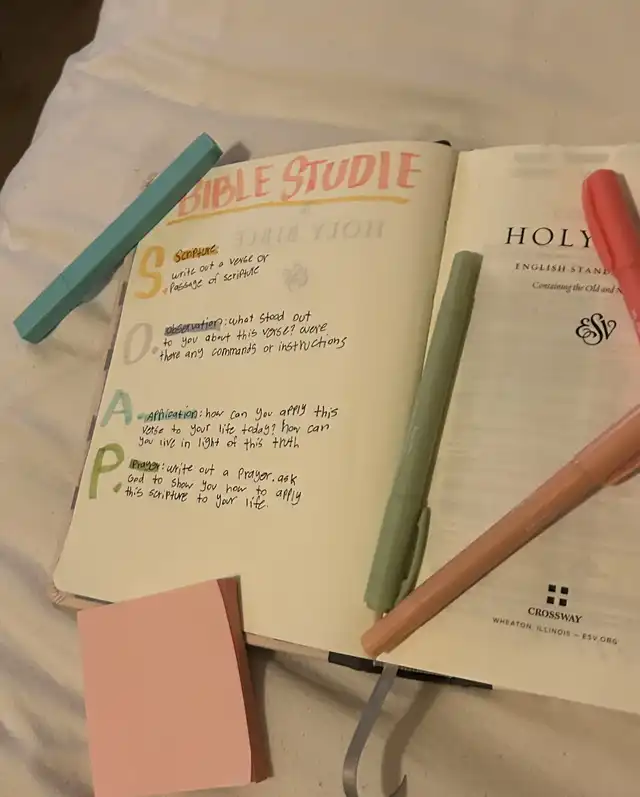 BIBLE STUDIE
HOLY BIBLE
S. Scripture
write out a verse or
Passage of scripture
O. observation: what stood out
to you about this verse? were
there any commands or instructions
A. Application: how can you apply this
verse to your life today? how can
you live in light of this truth
P. Prayer: write out a prayer. ask
God to show you how to apply
this scripture to your life.
HOLY
ENGLISH STAND
Containing the Old and N
ESV
CROSSWAY
WHEATON, ILLINOIS – ESV.ORG